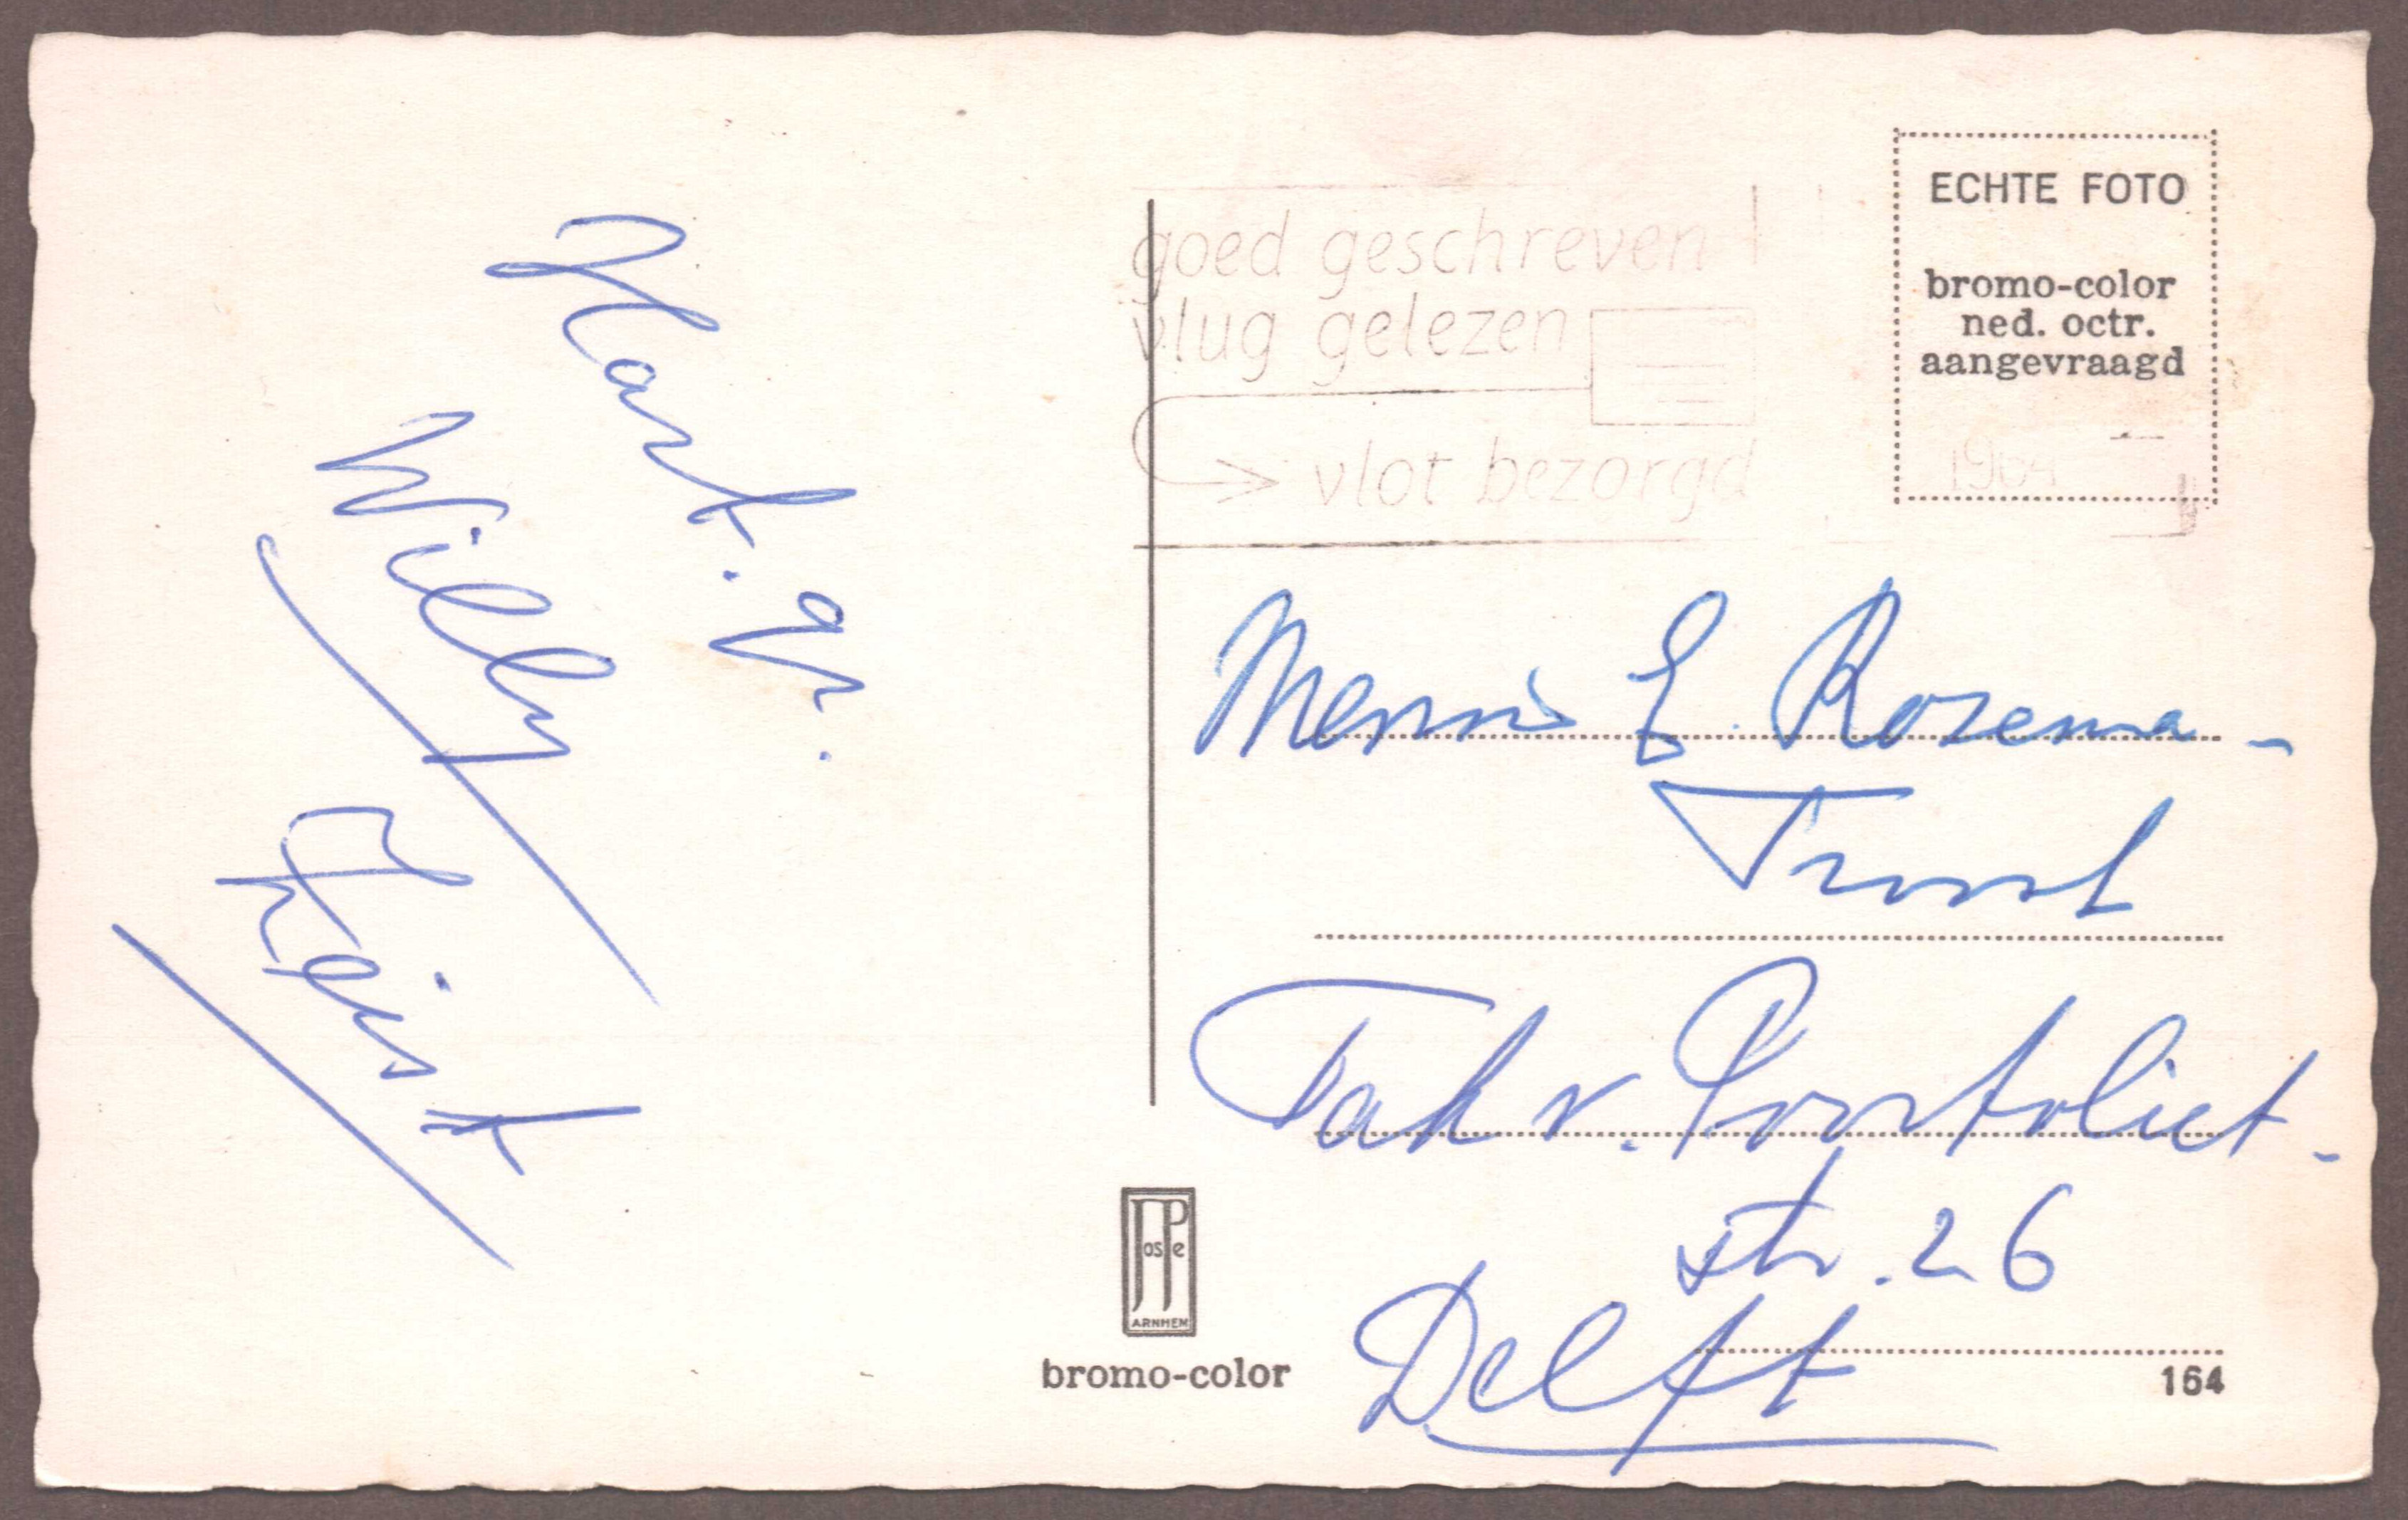 Hart. gr.
Willy
Zeist
goed geschreven
vlug gelezen
vlot bezorgd
ECHTE FOTO
bromo-color
ned. octr.
aangevraagd
1964
E. Rozema-
Trost
Tak v. Poortvliet-
str. 26
Delft
JosPe
ARNHEM
bromo-color
164